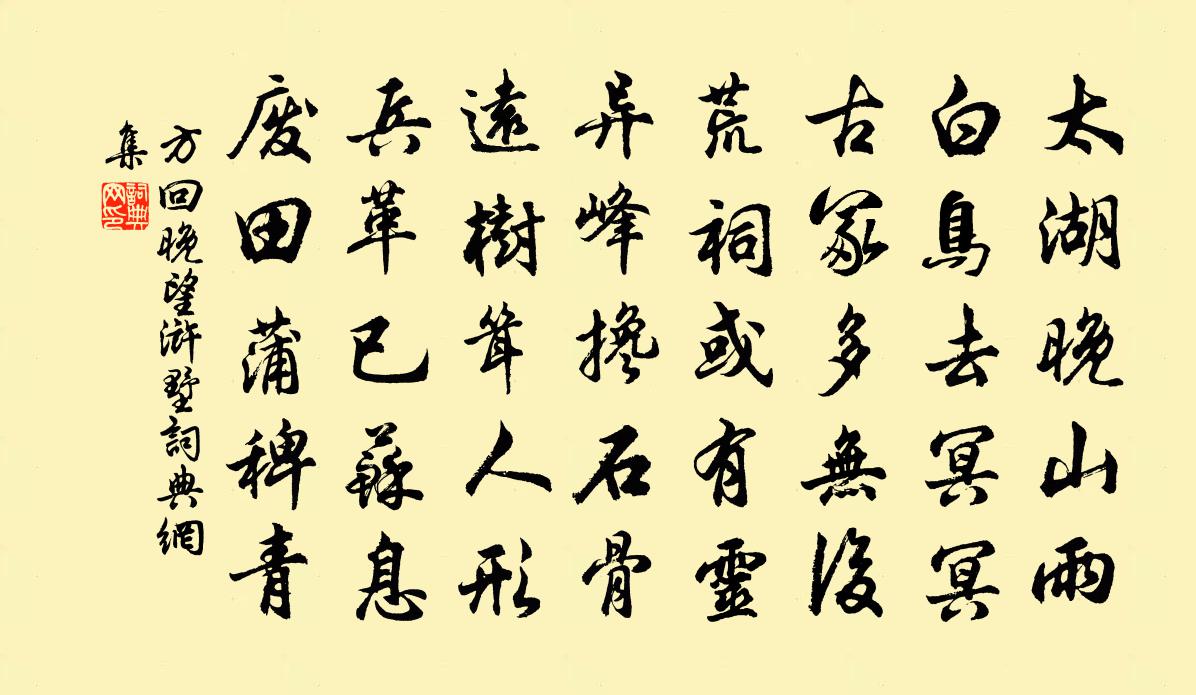 太湖晚山雨
白鳥去冥冥
古冢多無後
荒祠或有靈
异峰搀石骨
遠樹耸人形
兵革已蘇息
废田蒲稗青
方回晚望滸墅詞典網
集
詞典
网印